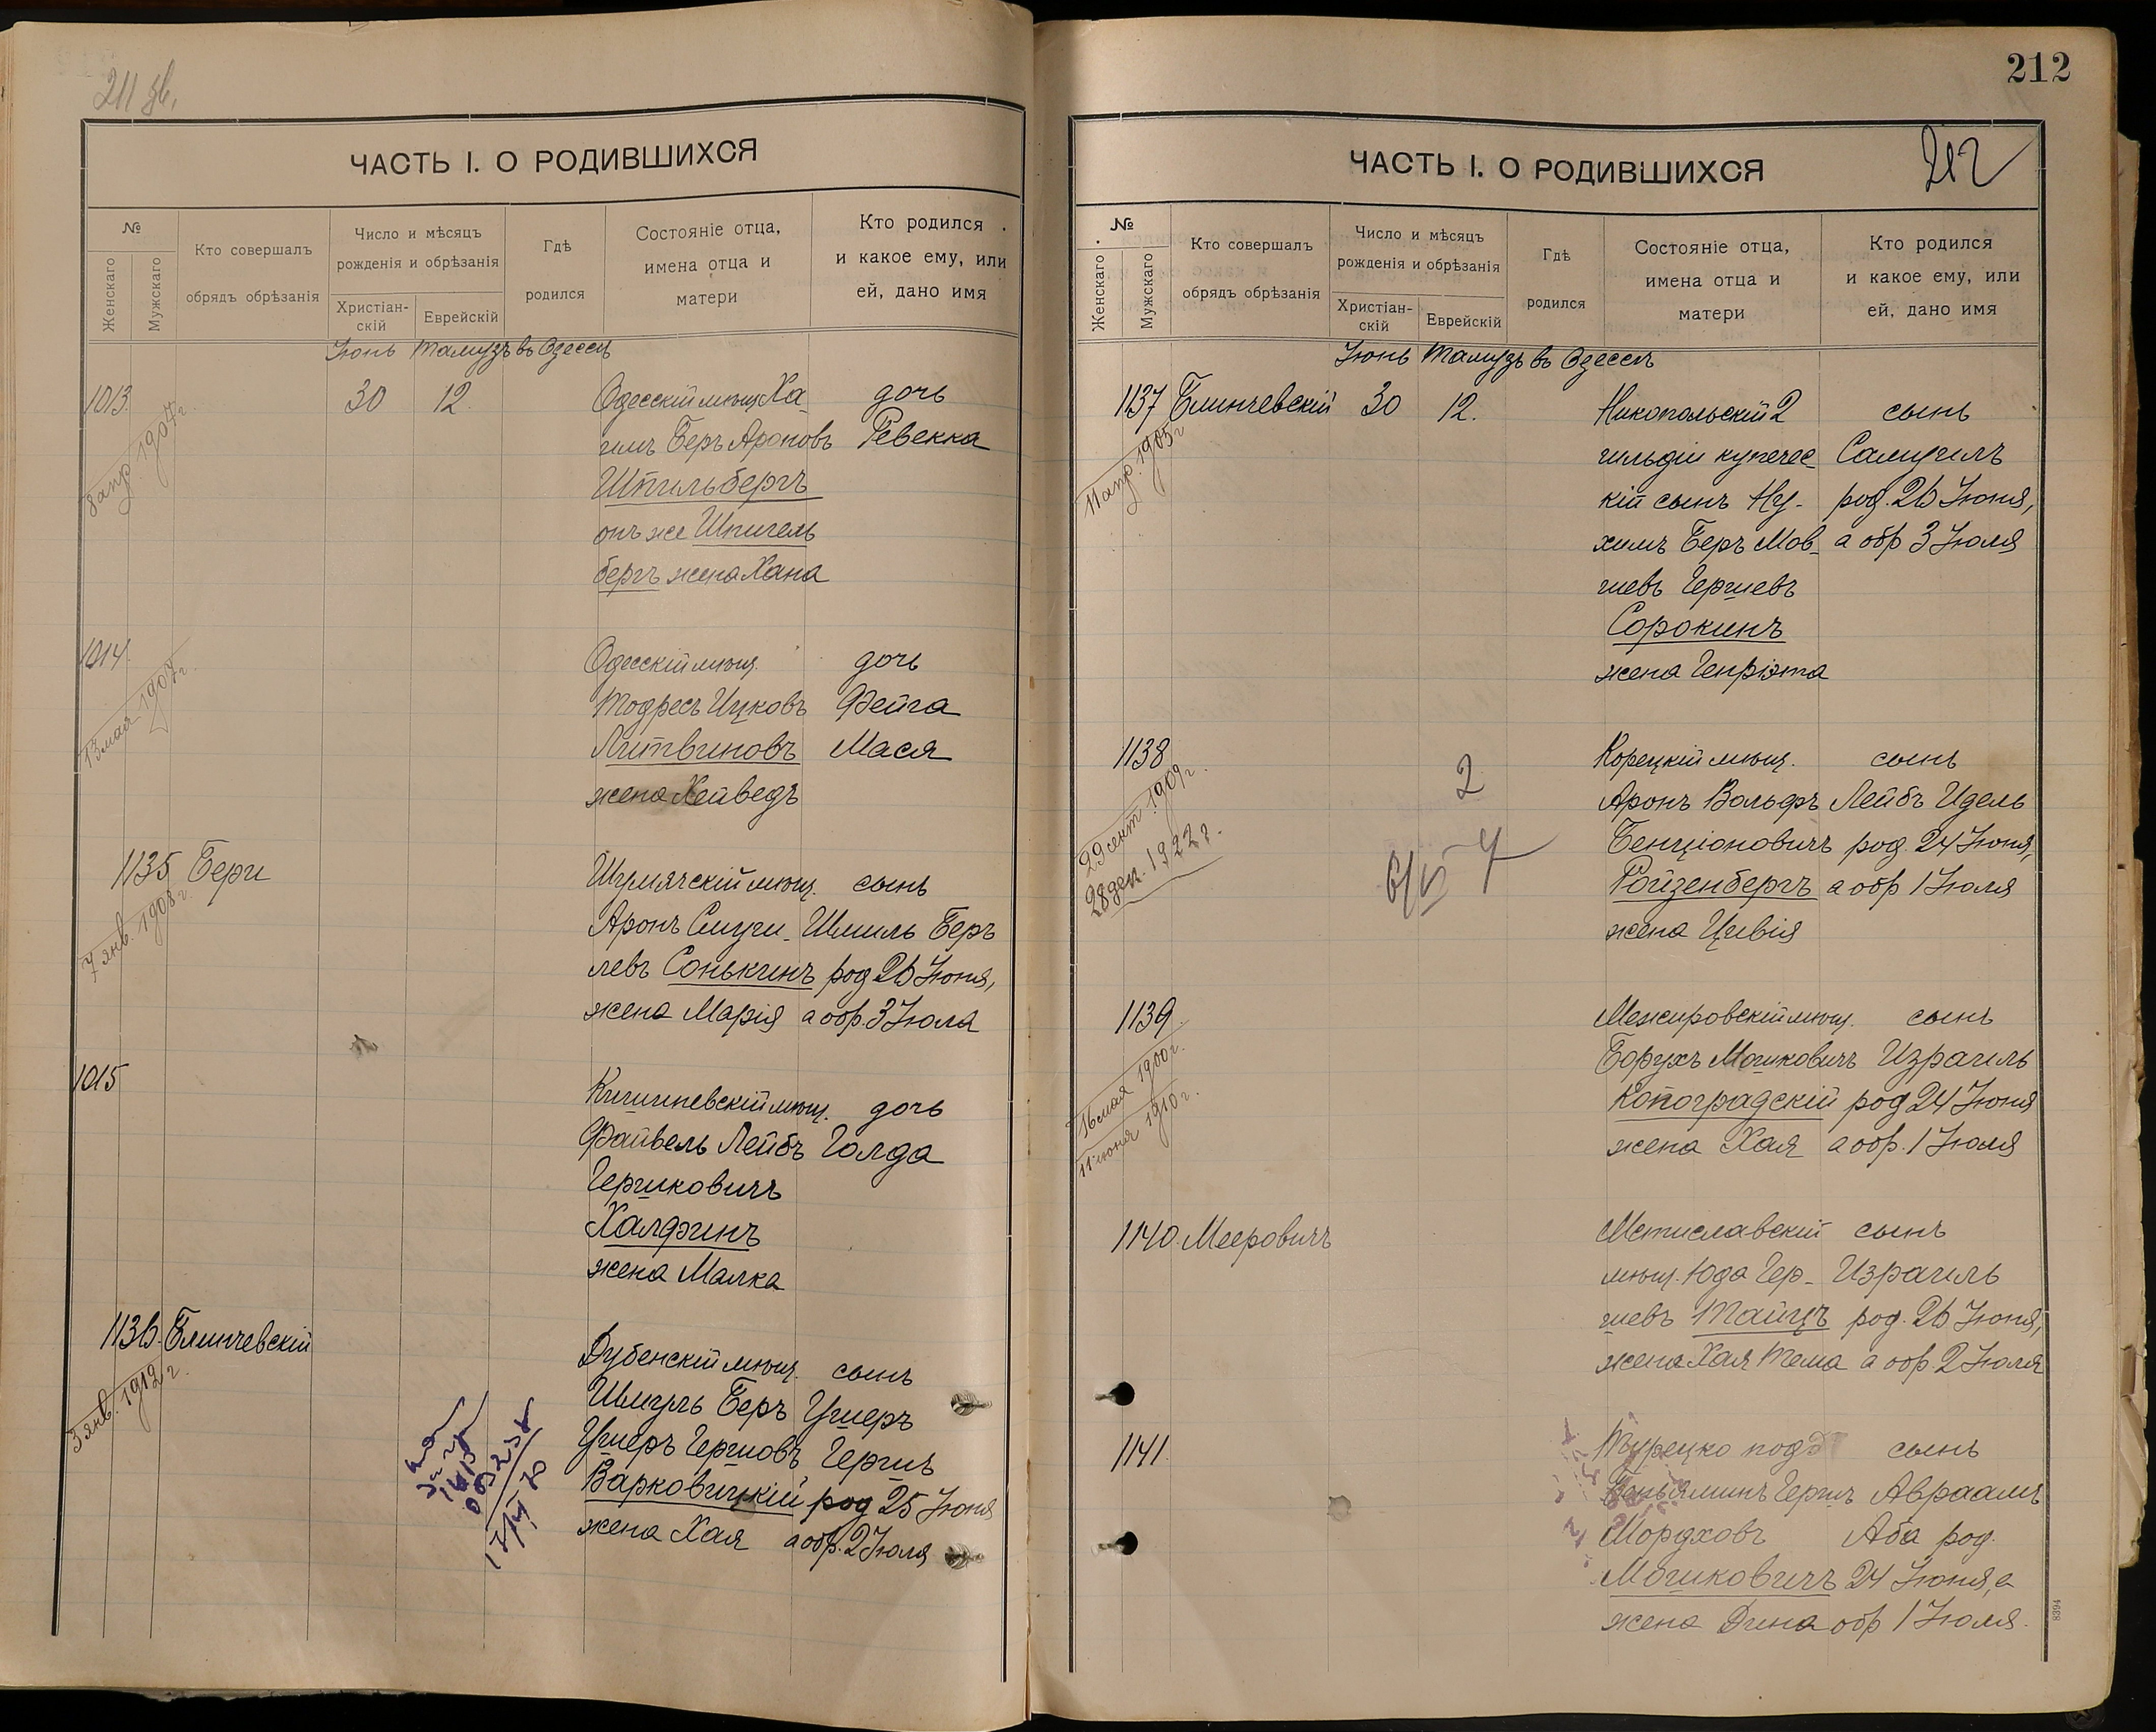 211 зв.
ЧАСТЬ I. О РОДИВШИХСЯ
№
Женскаго
Мужскаго
Кто совершалъ
обрядъ обрѣзанія
Число и мѣсяцъ
рожденія и обрѣзанія
Христіан-
скій
Еврейскій
Гдѣ
родился
Состояніе отца,
имена отца и
матери
Кто родился
и какое ему, или
ей, дано имя
Іюнь Тамузъ въ Одессѣ
1013 30 12 Одесскій мѣщ Ха- дочь
имъ Беръ Ароновъ Ревекка
Шпильбергъ
онъ же Шпигель
бергъ жена Хана
1014 Одесскій мѣщ. дочь
13 мая 1907 г.
Тодресъ Ицковъ Фейга
Литвиновъ Мася
жена Хейведъ
1135 Бери Шумячскій мѣщ. сынъ
7 янв. 1908 г.
Аронъ Смуи- Шмиль Беръ
левъ Сонькинъ род 26 Іюня,
жена Марія а обр. 3 Іюля
1015 Кишиневскій мѣщ. дочь
Файвель Лейбъ Голда
Гершковичъ
Халфинъ
жена Малка
1136. Блинчевскій Дубенскій мѣщ. сынъ
3 янв. 1912 г.
Шмуль Беръ Ушеръ
Ушеръ Гершовъ Гершъ
Варковицкій род 25 Іюня
жена Хая а обр. 2 Іюля
212
ЧАСТЬ I. О РОДИВШИХСЯ
212
№
Женскаго
Мужскаго
Кто совершалъ
обрядъ обрѣзанія
Число и мѣсяцъ
рожденія и обрѣзанія
Христіан-
скій
Еврейскій
Гдѣ
родился
Состояніе отца,
имена отца и
матери
Кто родился
и какое ему, или
ей, дано имя
Іюнь Тамузъ въ Одессѣ
1137 Блинчевскій 30 12. Никопольскій 2 сынъ
11 апр. 1905 г
гильдіи купечес- Самуилъ
кій сынъ Ну- род. 26 Іюня,
химъ Беръ Мов- а обр 3 Іюля
шевъ Гершевъ
Сорокинъ
жена Генріэта
1138 Корецкій мѣщ. сынъ
29 сент. 1909 г.
28 дек. 1922 г.
2
Аронъ Вольфъ Лейбъ Идель
Бенціоновичъ род. 24 Іюня,
Ройзенбергъ а обр 1 Іюля
жена Цивія
1139 Межировскій мѣщ. сынъ
16 мая 1900 г.
11 іюня 1910 г.
Борухъ Мошковичъ Израиль
Копоградскій род 24 Іюня
жена Хая а обр. 1 Іюля
1140. Мееровичъ Мстиславскій сынъ
мѣщ. Юда Гер- Израиль
шевъ Тайцъ род. 26 Іюня,
жена Хая Тема а обр. 2 Іюля
1141 Турецко под сынъ
Беньяминъ Гершъ Авраамъ
Мордховъ Аба род.
Мошковичъ 24 Іюня, а
жена Дина обр 1 Іюля.
8394